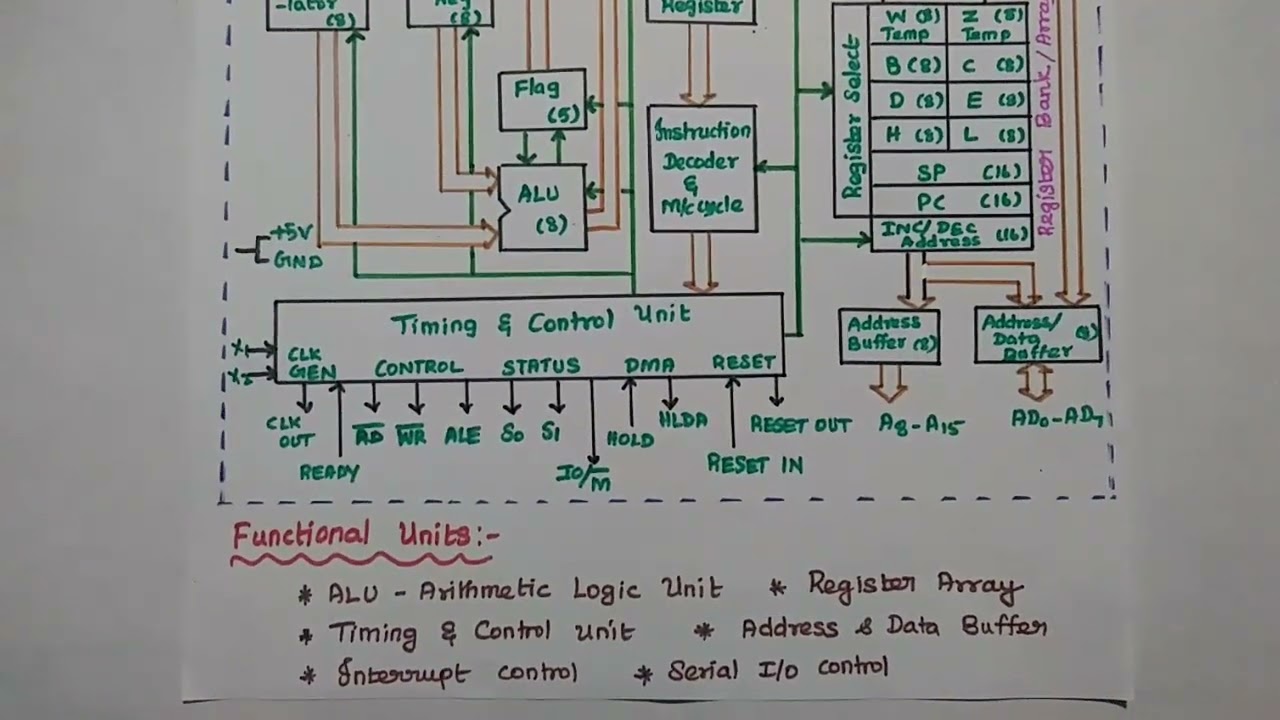 -lator
(8)
Reg
(8)
Register
W (8) Z (8)
Temp Temp
B (8) C (8)
D (8) E (8)
H (8) L (8)
SP (16)
PC (16)
INC/DEC
Address (16)
Register Select
Register Bank/Array
Flag
(5)
ALU
(8)
Instruction
Decoder
&
M/c cycle
+5V
GND
Timing & Control Unit
X1
X2
CLK
GEN CONTROL STATUS DMA RESET
Address
Buffer (8)
Address/
Data (8)
Buffer
CLK
OUT
READY
RD WR ALE S0 S1
IO/M
HOLD
HLDA
RESET IN
RESET OUT
A8-A15
AD0-AD7
Functional Units:-
* ALU - Arithmetic Logic Unit * Register Array
* Timing & Control Unit * Address & Data Buffer
* Interrupt control * Serial I/O control